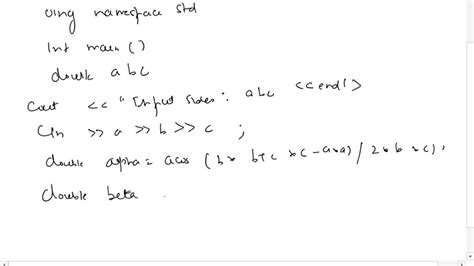 uing namespace std
Int main ()
double a b c
Cout << "Input sides: abc << endl>
Cin >> a >> b >> c ;
double alpha = acos (b* b+c *c-a*a) / 2*b *c) ;
double beta